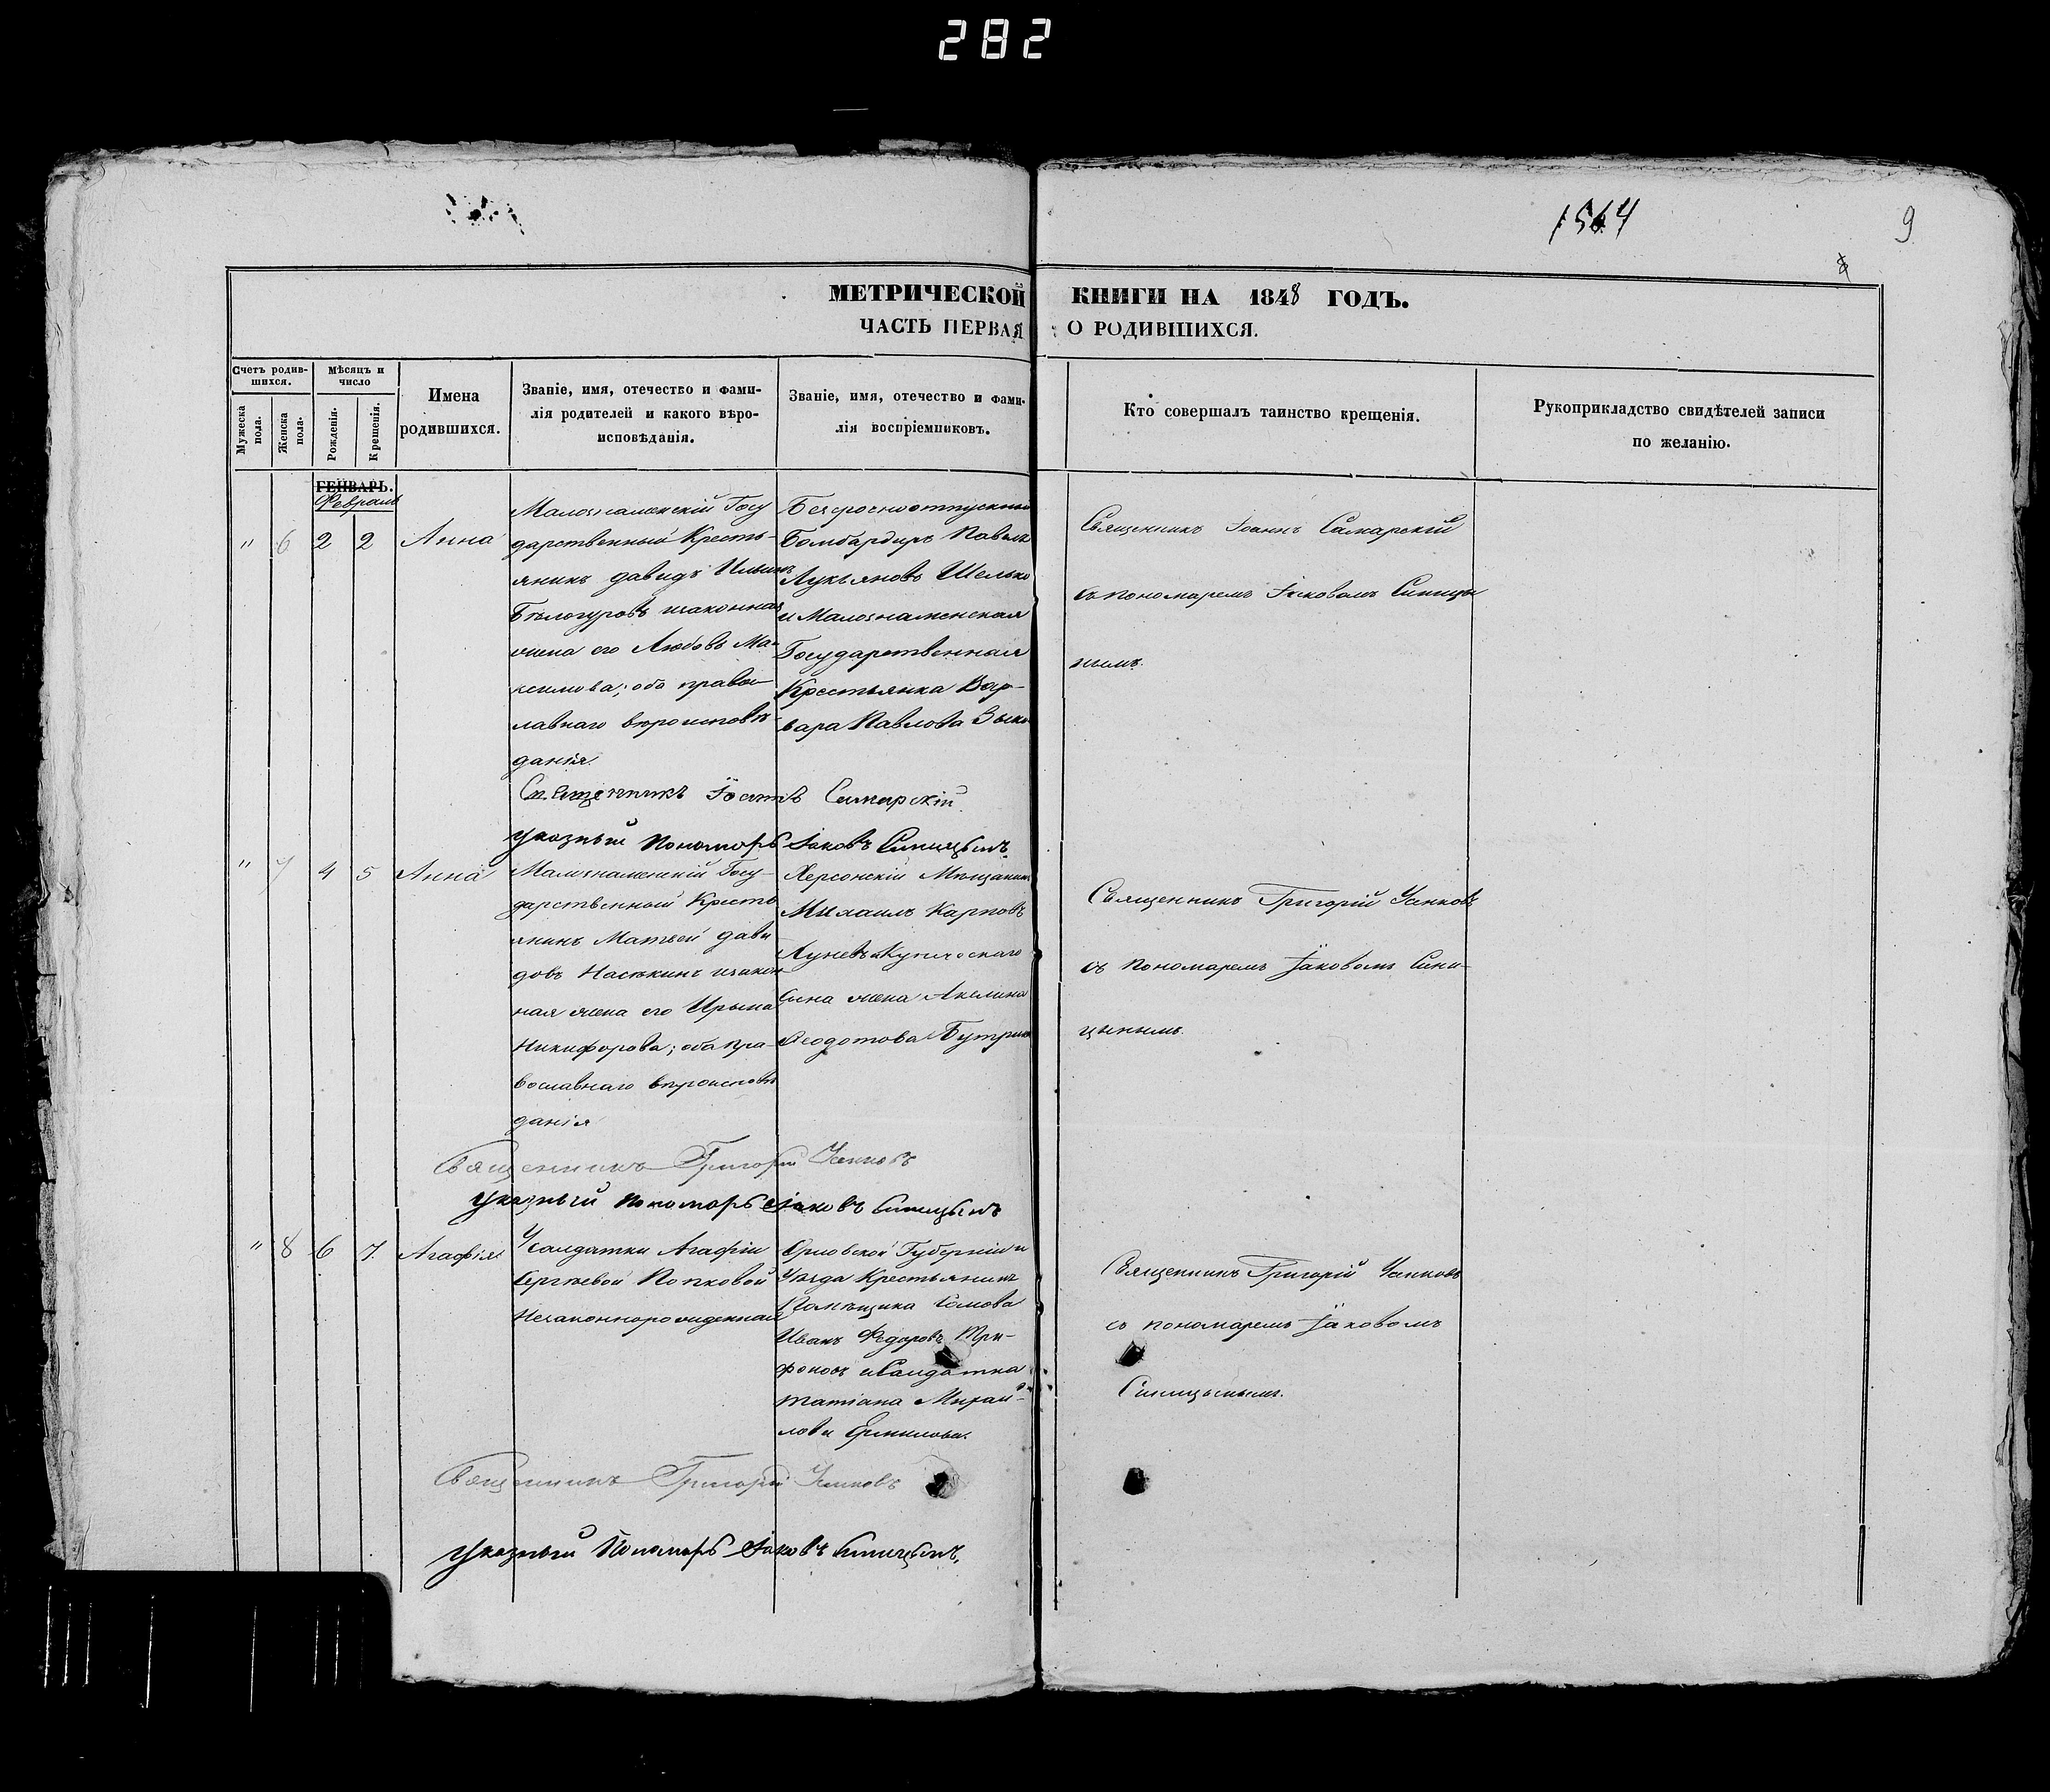 282
1564
9
МЕТРИЧЕСКОЙ КНИГИ НА 1848 ГОДЪ.
ЧАСТЬ ПЕРВАЯ О РОДИВШИХСЯ.
Счетъ родив-
шихся.
Мужеска пола.
Женска пола.
Мѣсяцъ и число
Рожденія.
Крещенія.
Имена
родившихся.
Званіе, имя, отечество и фами-
лія родителей и какого вѣро-
исповѣданія.
Званіе, имя, отечество и фами-
лія воспріемниковъ.
Кто совершалъ таинство крещенія.
Рукоприкладство свидѣтелей записи
по желанію.
ГЕНВАРЬ.
Февраль
" 6 2 2 Анна
Малознаменскій Госу
дарственный Кресть-
янинъ давидъ Ильинъ
Бѣлогуровъ изаконная
жена его Любовь Ма-
ксимова; оба правос
лавнаго вѣроисповѣ-
данія.
Безсрочноотпускной
Бомбардиръ Павелъ
Лукьяновъ Шелько
и Малознаменская
Государственная
Крестьянка Вар-
вара Павлова
Священникъ Іоаннъ Самарскій
съ пономаремъ Іаковомъ Синицы
нымъ.
Священникъ Іоаннъ Самарскій
указный Пономарь Іаковъ Синицынъ
" 7 4 5 Анна
Малознаменскій Госу-
дарственный Кресть
янинъ Матвей дави
довъ Насѣкинъ изакон
ная жена его Ирына
Никифорова; оба пра-
вославнаго вѣроисповѣ
данія
Херсонскій Мѣщанинъ
Михаилъ Карповъ
Луневъ и Купеческаго
Сына жена Акелина
Ѳеодотова
Священникъ Григорій Усиковъ
съ пономаремъ Іаковомъ Сини-
цынымъ.
Священникъ Григорій Усиковъ
указный пономарь Іаковъ Синицынъ
" 8 6 7. Агафія
У салдатки Агафіи
Сергѣевой Попковой
Незаконнорожденная
Орловской Губерніи и
Уѣзда Крестьянинъ
Помѣщика Сомова
Иванъ Федоровъ Три-
фоновъ и Салдатка
татіана Михай-
лова Ермилова.
Священникъ Григорій Усиковъ
съ пономаремъ Іаковомъ
Синицынымъ.
Священникъ Григорій Усиковъ
указный Пономарь Іаковъ Синицынъ.